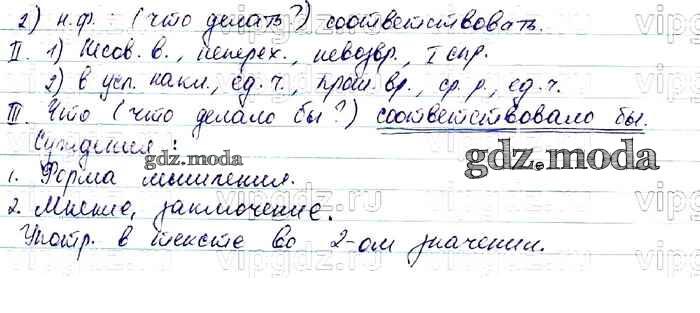 2) н.ф.: (что делать?) соответствовать.
II. 1) Несов. в., неперех., невозвр., I спр.
2) в усл. накл., ед. ч., прош. вр., ср. р., ед. ч.
III. Что (что делало бы?) соответствовало бы.
Суждения:
gdz.moda
gdz.moda
1. Форма мышления.
2. Мнение, заключение.
Употр. в тексте во 2-ом значении.
vipgdz.ru